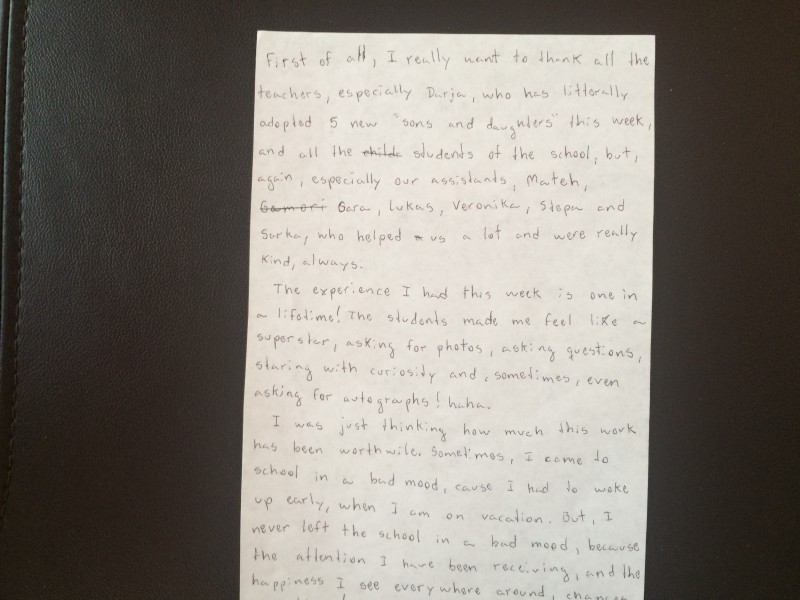 First of all, I really want to thank all the
teachers, especially Darja, who has littorally
adopted 5 new "sons and daughters" this week,
and all the childs students of the school, but,
again, especially our assistants, Mateh,
Gamori Gara, Lukas, Veronika, Stepa and
Sarka, who helped us a lot and were really
kind, always.
The experience I had this week is one in
a lifetime! The students made me feel like a
superstar, asking for photos, asking questions,
staring with curiosity and, sometimes, even
asking for autographs! haha.
I was just thinking how much this work
has been worthwile. Sometimes, I come to
school in a bad mood, cause I had to woke
up early, when I am on vacation. But, I
never left the school in a bad mood, because
the attention I have been receiving, and the
happiness I see everywhere around, changes